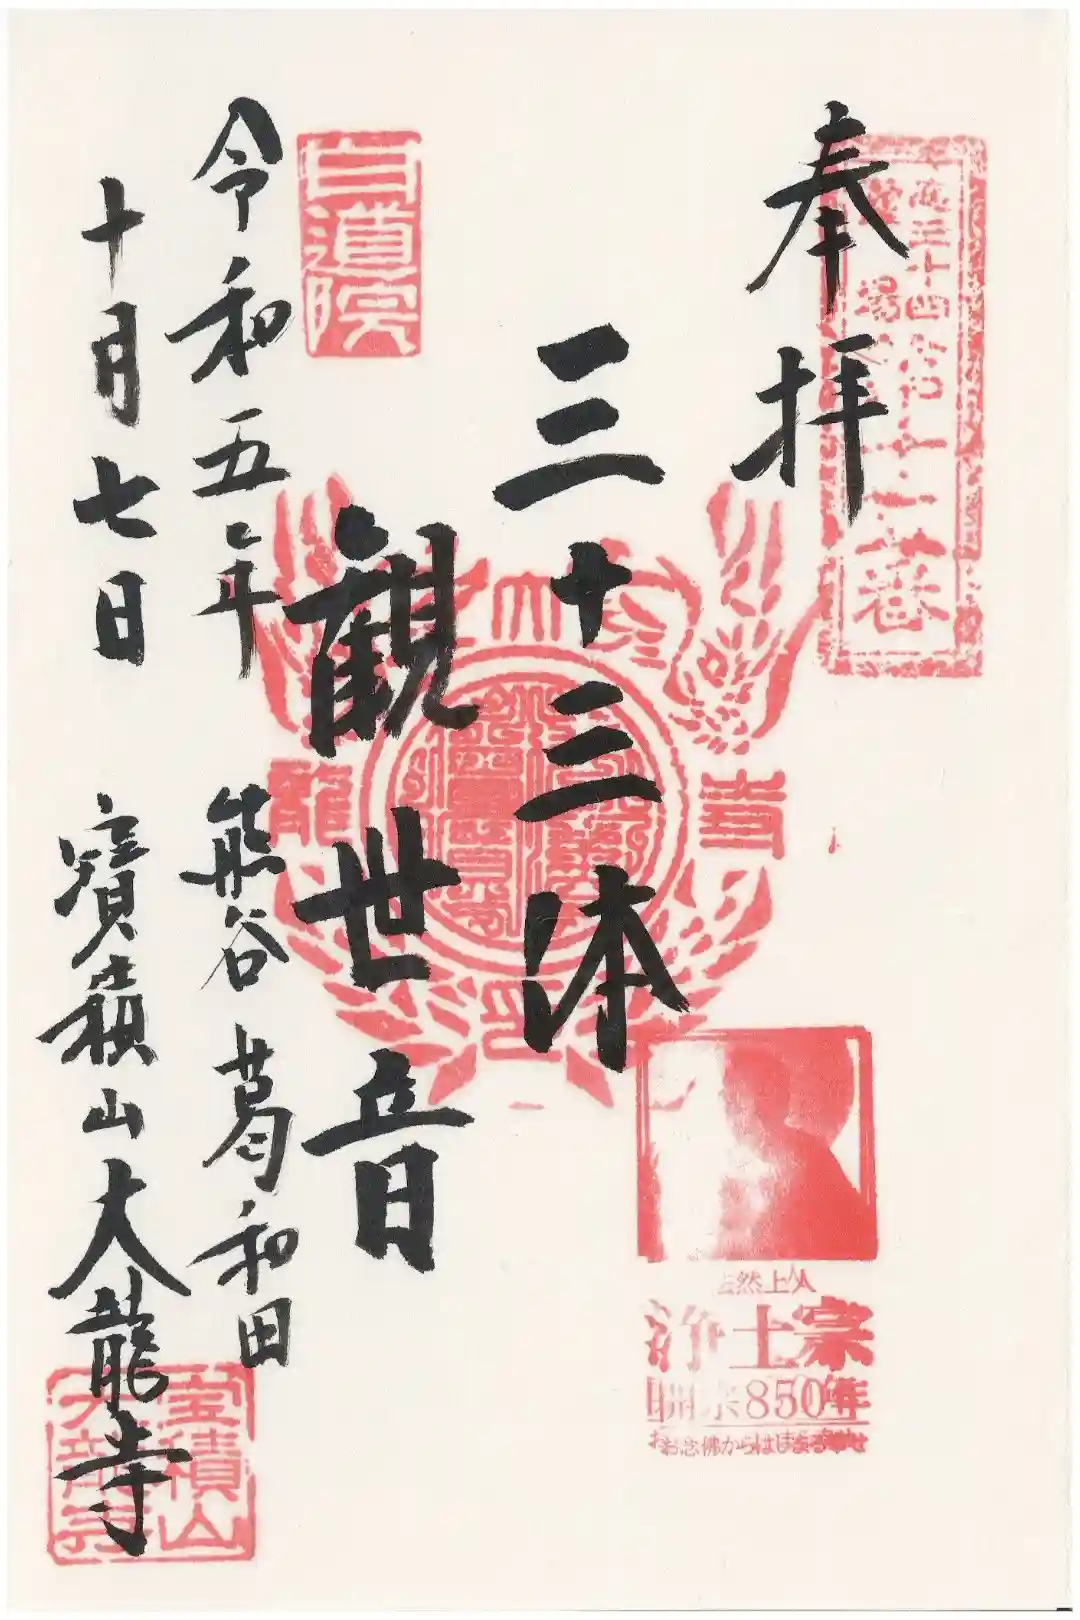 奉拝
三十三体
観世音
令和五年
十月七日
熊谷 葛和田
寶積山大龍寺
白道院
番
大
龍
寺
印
宝積山
大龍寺
然上人
浄土宗
開宗850年
お念佛からはじまる幸せ